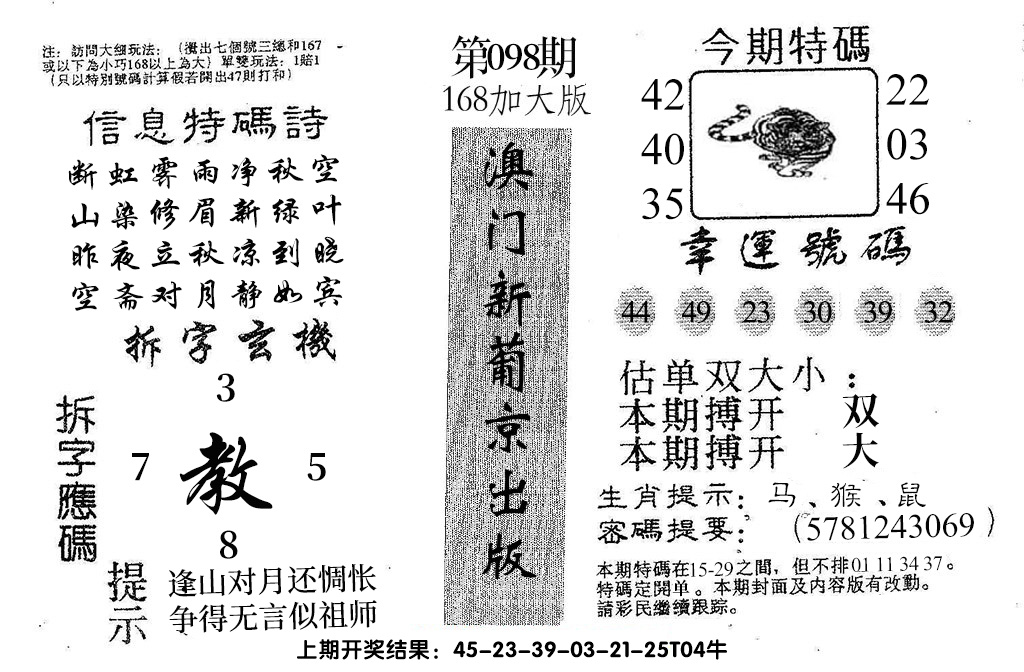 注：訪問大细玩法：（攪出七個號三總和167
或以下為小巧168以上為大）單雙玩法：1賠1
（只以特別號碼計算假若開出47則打和）
信息特碼詩
断虹霁雨净秋空
山染修眉新绿叶
昨夜立秋凉到晓
空斋对月静如宾
拆字玄機
拆字應碼
3
7 教 5
8
提示
逢山对月还惆怅
争得无言似祖师
第098期
168加大版
澳门新葡京出版
今期特碼
42 22
40 03
35 46
幸運號碼
44 49 23 30 39 32
估单双大小：
本期搏开 双
本期搏开 大
生肖提示：马、猴、鼠
密碼提要：（5781243069）
本期特碼在15-29之間，但不排01 11 34 37。
特碼定開单。本期封面及内容版有改動。
請彩民繼續跟踪。
上期开奖结果：45-23-39-03-21-25T04牛